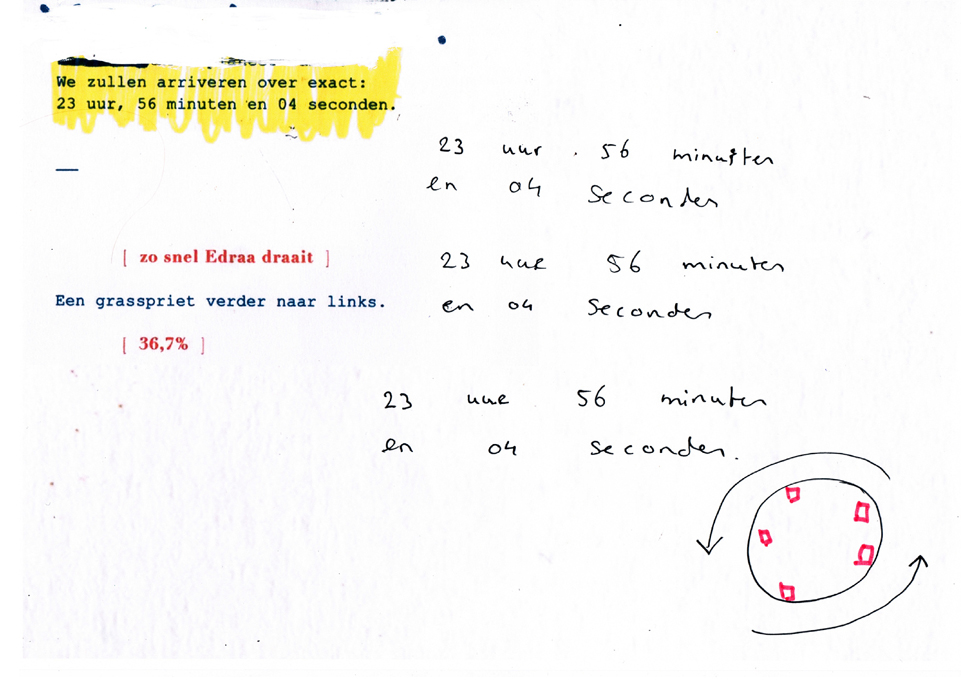 We zullen arriveren over exact:
23 uur, 56 minuten en 04 seconden.
23 uur . 56 minuten
en 04 seconden
[ zo snel Edraa draait ]
23 uur 56 minuten
en 04 seconden
Een grasspriet verder naar links.
[ 36,7% ]
23 uur 56 minuten
en 04 seconden.